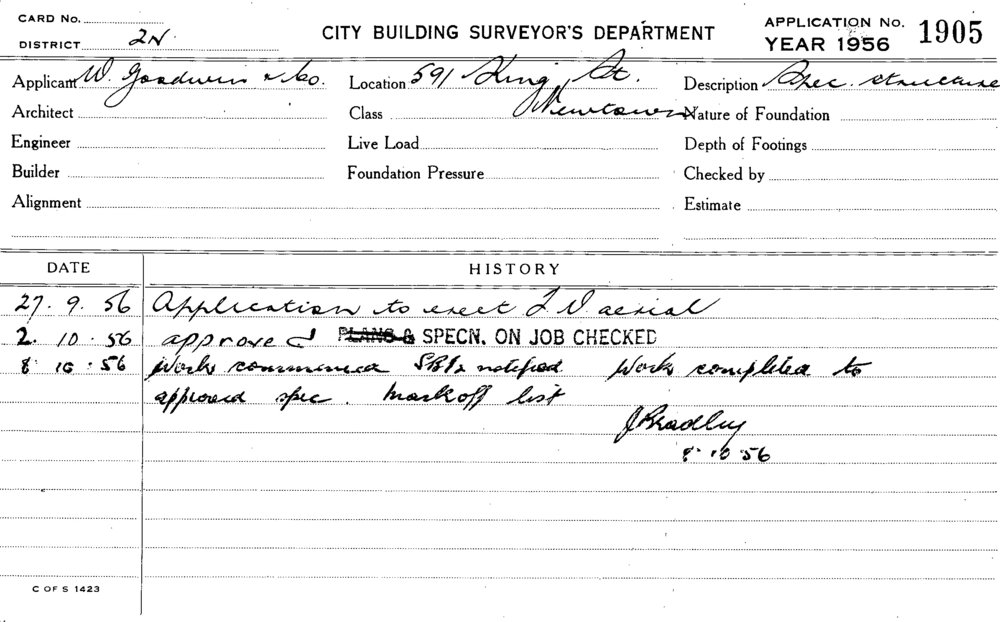 CARD No.
DISTRICT 2N.
CITY BUILDING SURVEYOR'S DEPARTMENT
APPLICATION No. 1905
YEAR 1956
Applicant W. Goodwin & Co. Location 591 King St. Description Spec. structure
Architect Class Newtown Nature of Foundation
Engineer Live Load Depth of Footings
Builder Foundation Pressure Checked by
Alignment Estimate
DATE HISTORY
27. 9. 56 Application to erect T.V. aerial
2. 10. 56 approved PLANS & SPECN. ON JOB CHECKED
8. 10. 56 Work commenced notified Work completed to
approved spec. Mark off list
J Bradley
8. 10. 56
C OF S 1423